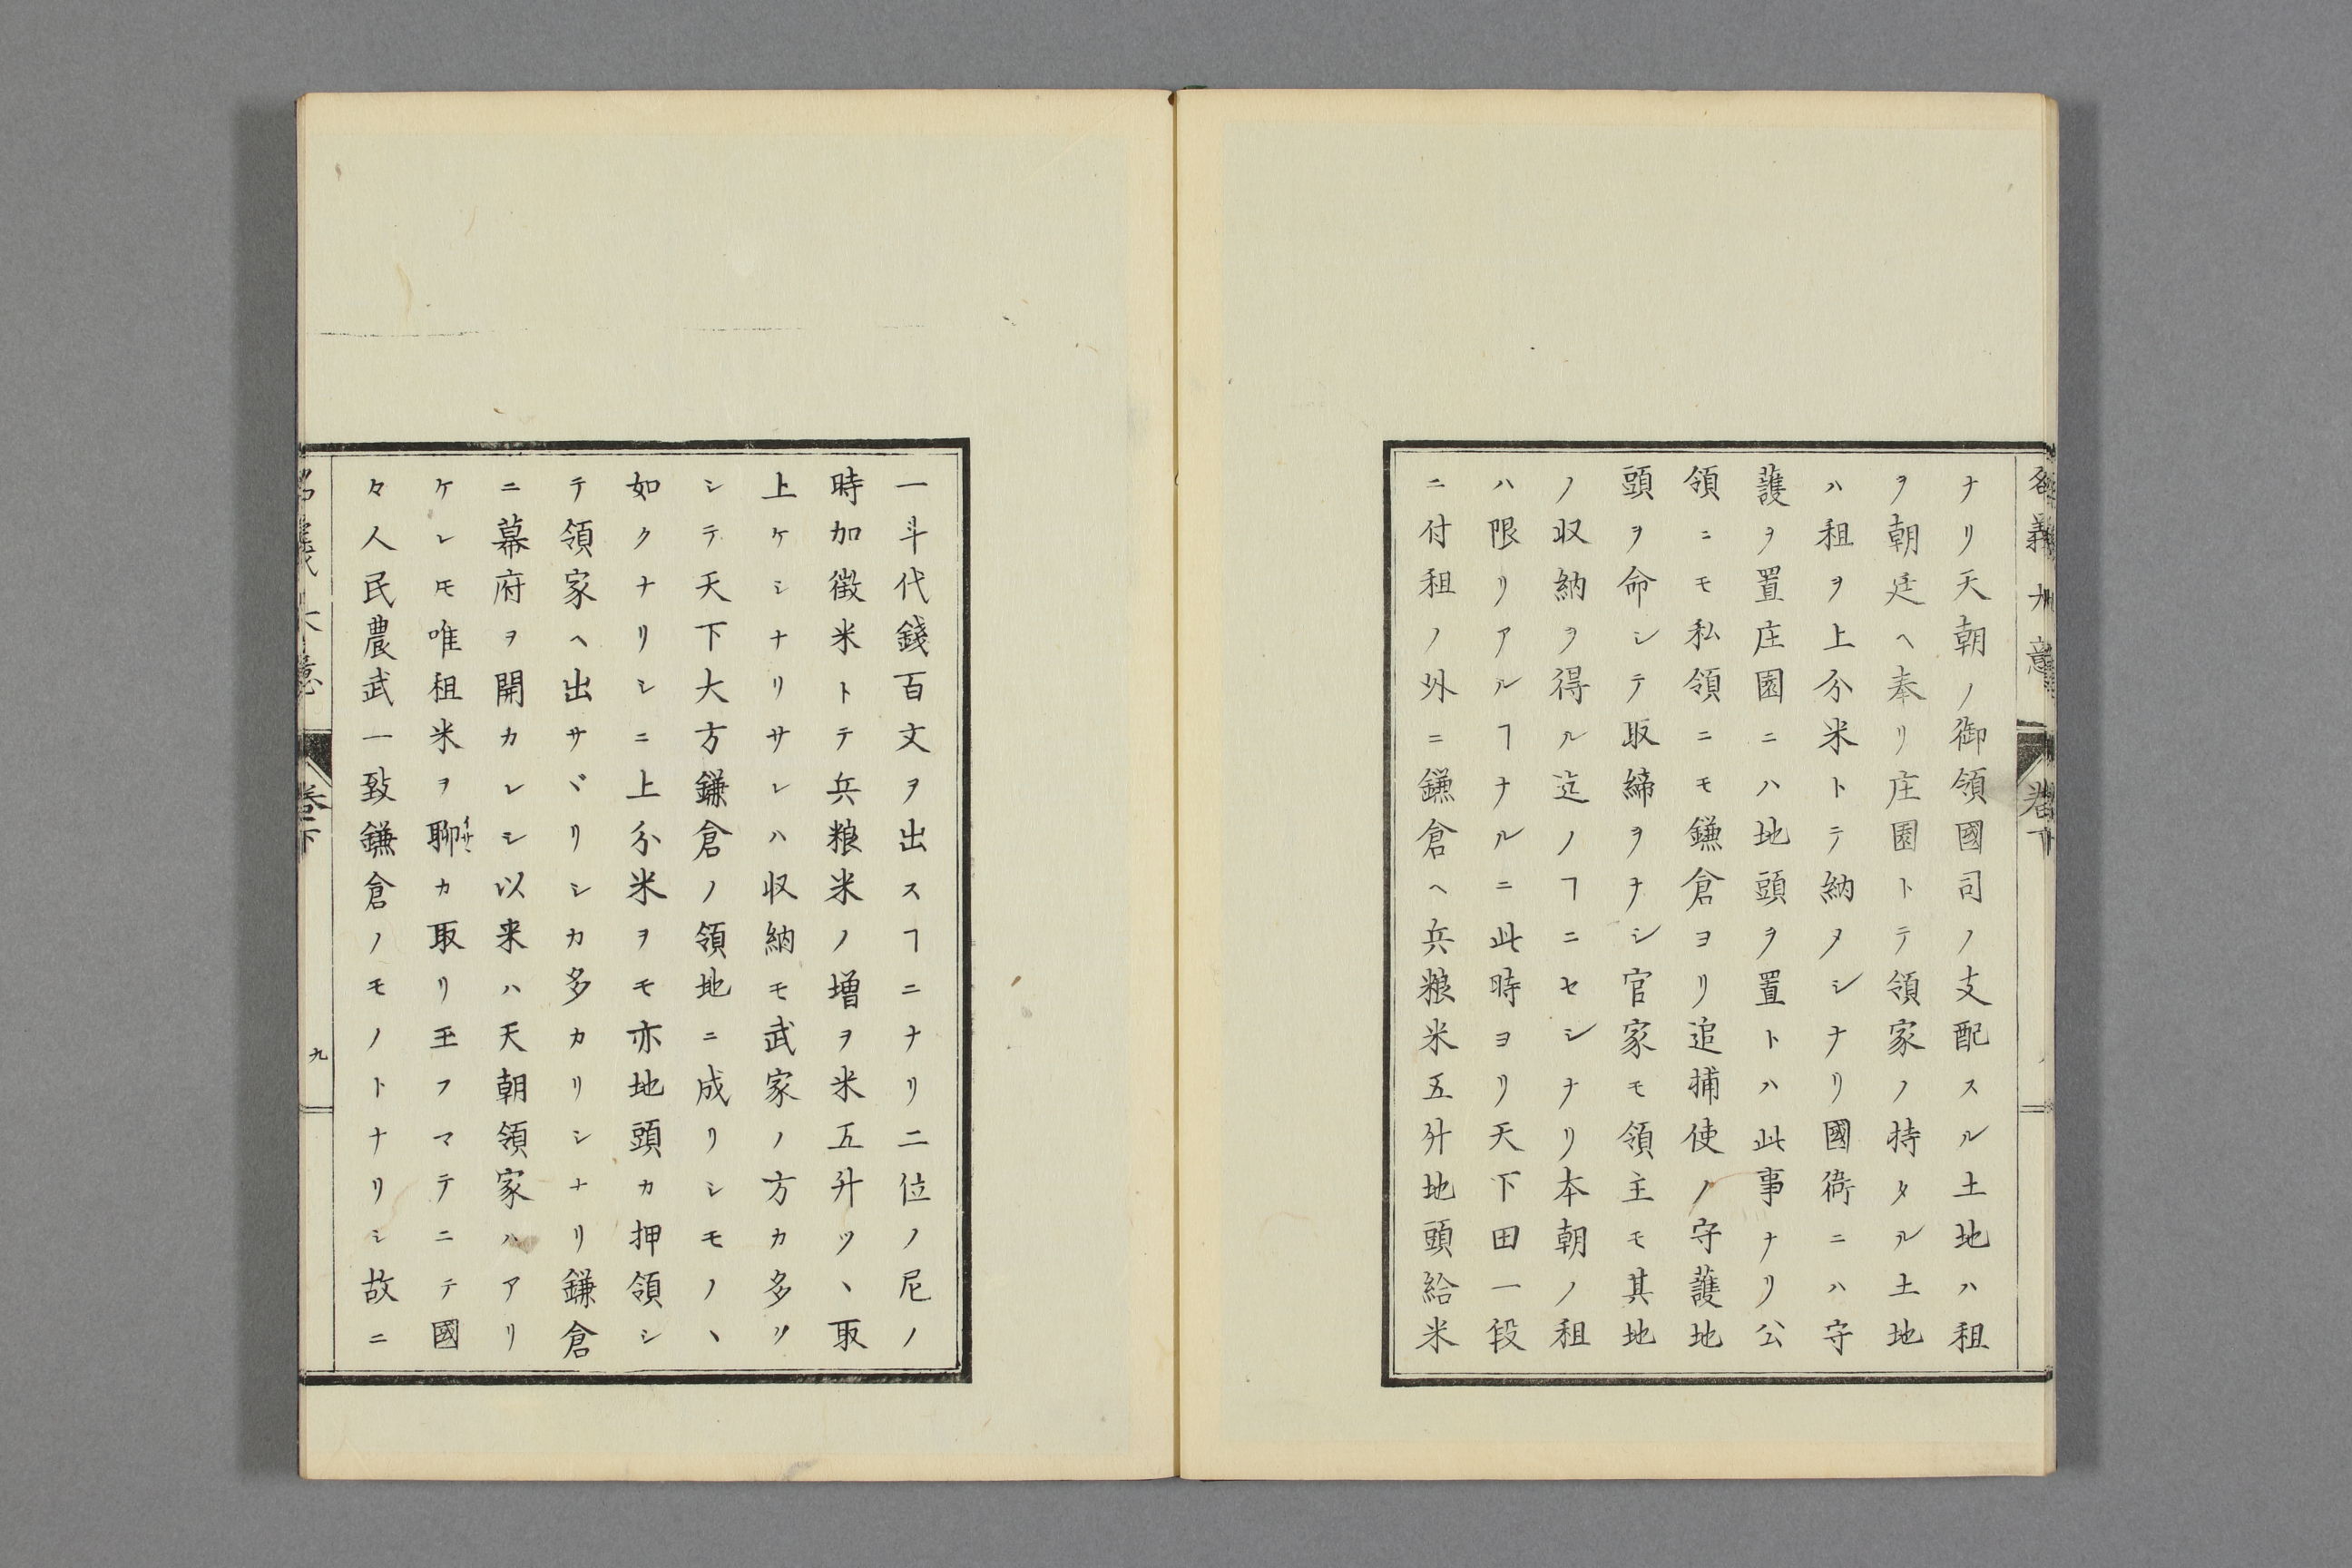 ナリ天朝ノ御領國司ノ支配スル土地ハ租
ヲ朝廷ヘ奉リ庄園トテ領家ノ持タル土地
ハ租ヲ上分米トテ納タシナリ國衙ニハ守
護ヲ置庄園ニハ地頭ヲ置トハ此事ナリ公
領ニモ私領ニモ鎌倉ヨリ追捕使ノ守護地
頭ヲ命シテ取締ヲナシ官家モ領主モ其地
ノ収納ヲ得ル迄ノヿニセシナリ本朝ノ租
ハ限リアルヿナルニ此時ヨリ天下田一段
ニ付租ノ外ニ鎌倉ヘ兵粮米五升地頭給米
一斗代錢百文ヲ出スヿニナリ二位ノ尼ノ
時加徴米トテ兵粮米ノ増ヲ米五升ツヽ取
上ケシナリサレハ収納モ武家ノ方カ多ツ
シテ天下大方鎌倉ノ領地ニ成リシモノヽ
如クナリシニ上分米ヲモ亦地頭カ押領シ
テ領家ヘ出サヾリシカ多カリシナリ鎌倉
ニ幕府ヲ開カレシ以来ハ天朝領家ハアリ
ケレ𪜈唯租米ヲ聊カ取リ玉フマテニテ國
々人民農武一致鎌倉ノモノトナリシ故ニ
名義大意
卷下
九